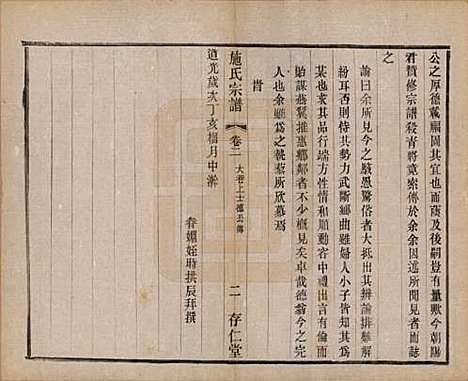 公之厚德載福固其宜也而蔭及後嗣豈有量歟今朝陽
君贊修宗譜殺青將竟索傳於余余因述所聞見者而誌
之
論曰余所見今之駭愚驚俗者大商止其辨論排難解
紛耳否則恃其勢力武斷鄉曲雖婦人小子皆知其為
某也求其品行端方性情和順動容中禮言有倫而
貽謀燕翼推惠鄉鄰者不少概見矣卓哉德翁今之完
人也余願為之執鞭所欣慕焉
道光歲次丁亥榴月中澣
眷媚姪時拱辰拜撰
施氏宗譜
卷二
大耆上士德丟傳
二
存仁堂